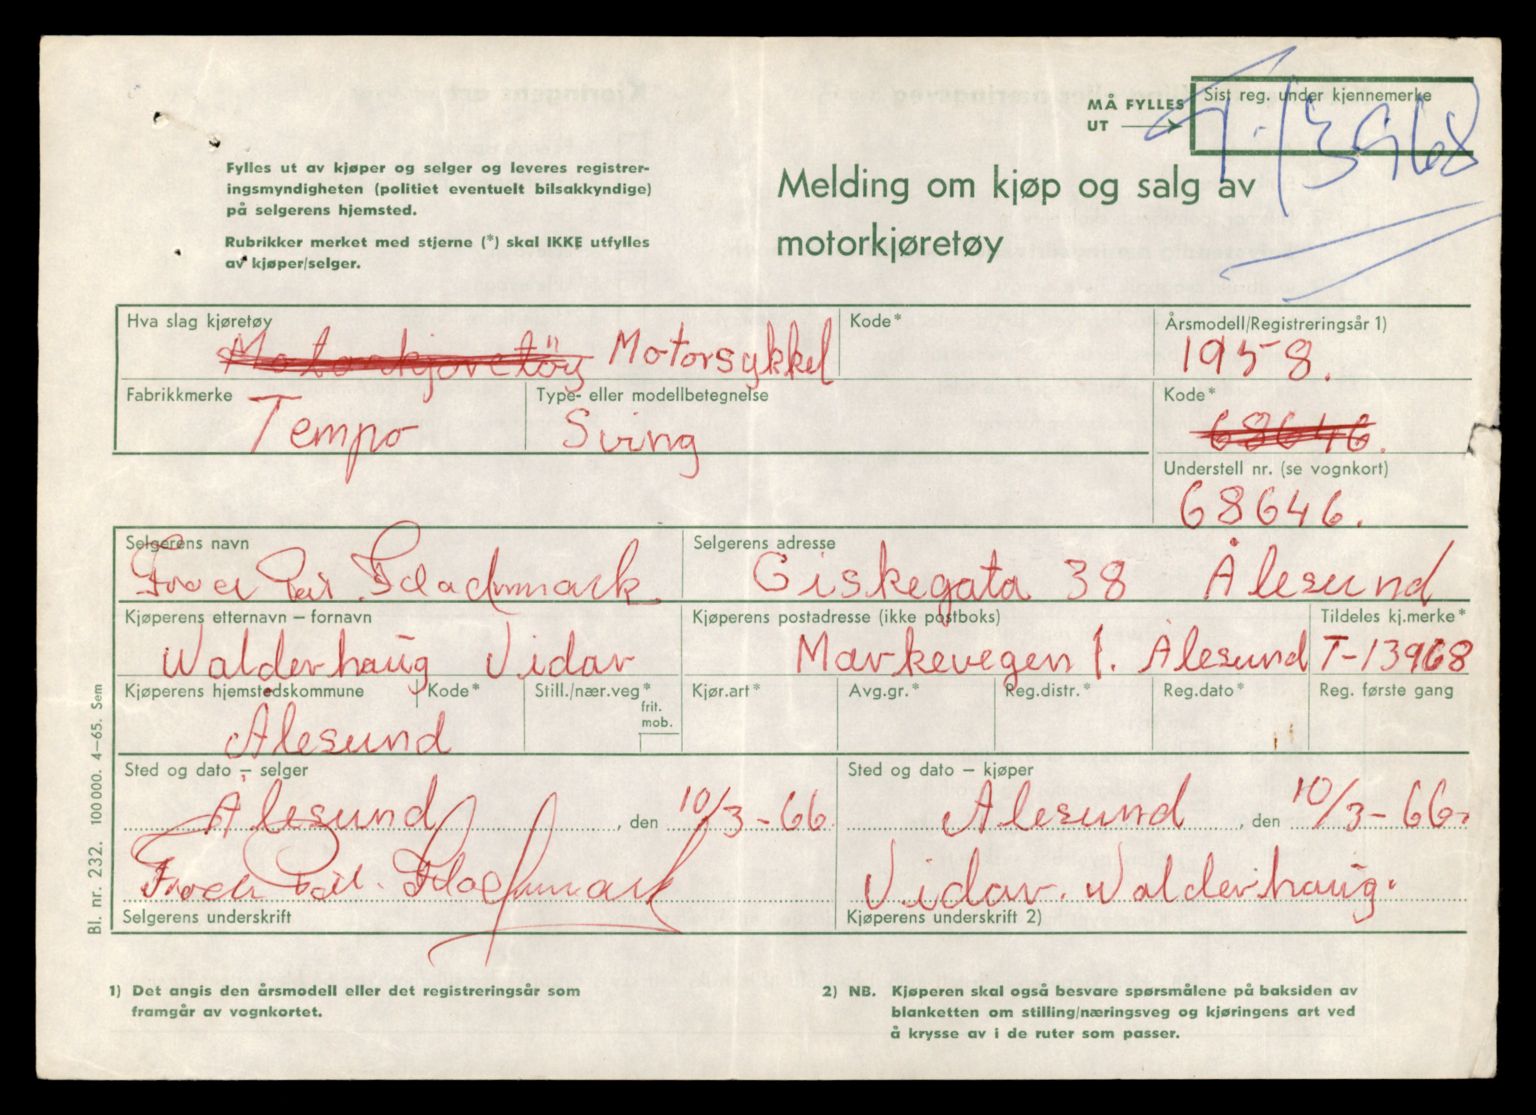 MÅ FYLLES UT
Sist reg. under kjennemerke
T-13968
Fylles ut av kjøper og selger og leveres registrer-
ingsmyndigheten (politiet eventuelt bilsakkyndige)
på selgerens hjemsted.
Rubrikker merket med stjerne (*) skal IKKE utfylles
av kjøper/selger.
Melding om kjøp og salg av
motorkjøretøy
Hva slag kjøretøy
Motorkjøretöy Motorsykkel
Kode*
Årsmodell/Registreringsår 1)
1958.
Fabrikkmerke
Tempo
Type- eller modellbetegnelse
Sving
Kode*
68646.
Understell nr. (se vognkort)
68646.
Selgerens navn
Selgerens adresse
Giskegata 38 Ålesund
Kjøperens etternavn – fornavn
Walderhaug Vidar
Kjøperens postadresse (ikke postboks)
Markevegen 1. Ålesund
Tildeles kj.merke*
T-13968
Kjøperens hjemstedskommune
Ålesund
Kode*
Still./nær.veg*
frit.
mob.
Kjør.art*
Avg.gr.*
Reg.distr.*
Reg.dato*
Reg. første gang
Sted og dato – selger
Ålesund, den 10/3-66.
Selgerens underskrift
Sted og dato – kjøper
Ålesund, den 10/3-66.
Vidar Walderhaug.
Kjøperens underskrift 2)
Bl. nr. 232. 100000. 4–65. Sem
1) Det angis den årsmodell eller det registreringsår som
framgår av vognkortet.
2) NB. Kjøperen skal også besvare spørsmålene på baksiden av
blanketten om stilling/næringsveg og kjøringens art ved
å krysse av i de ruter som passer.